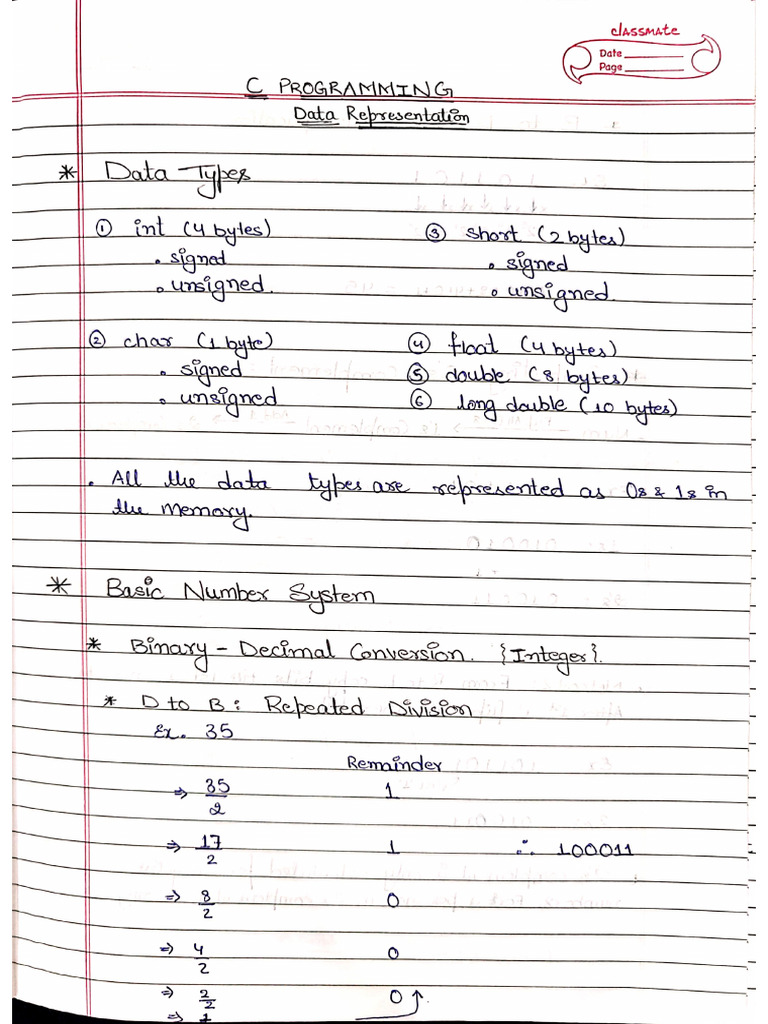 classmate
Date
Page
C PROGRAMMING
Data Representation
* Data Types
① int (4 bytes)
. signed
. unsigned.
③ short (2 bytes)
. signed
. unsigned.
② char (1 byte)
. signed
. unsigned
④ float (4 bytes)
⑤ double (8 bytes)
⑥ long double (10 bytes)
. All the data types are represented as 0s & 1s in
the memory.
* Basic Number System
* Binary - Decimal Conversion. {Integer}.
* D to B : Repeated Division
Ex. 35
Remainder
⇒ 35/2 1
⇒ 17/2 1 ∴ 100011
⇒ 8/2 0
⇒ 4/2 0
⇒ 2/2 0
⇒ 1